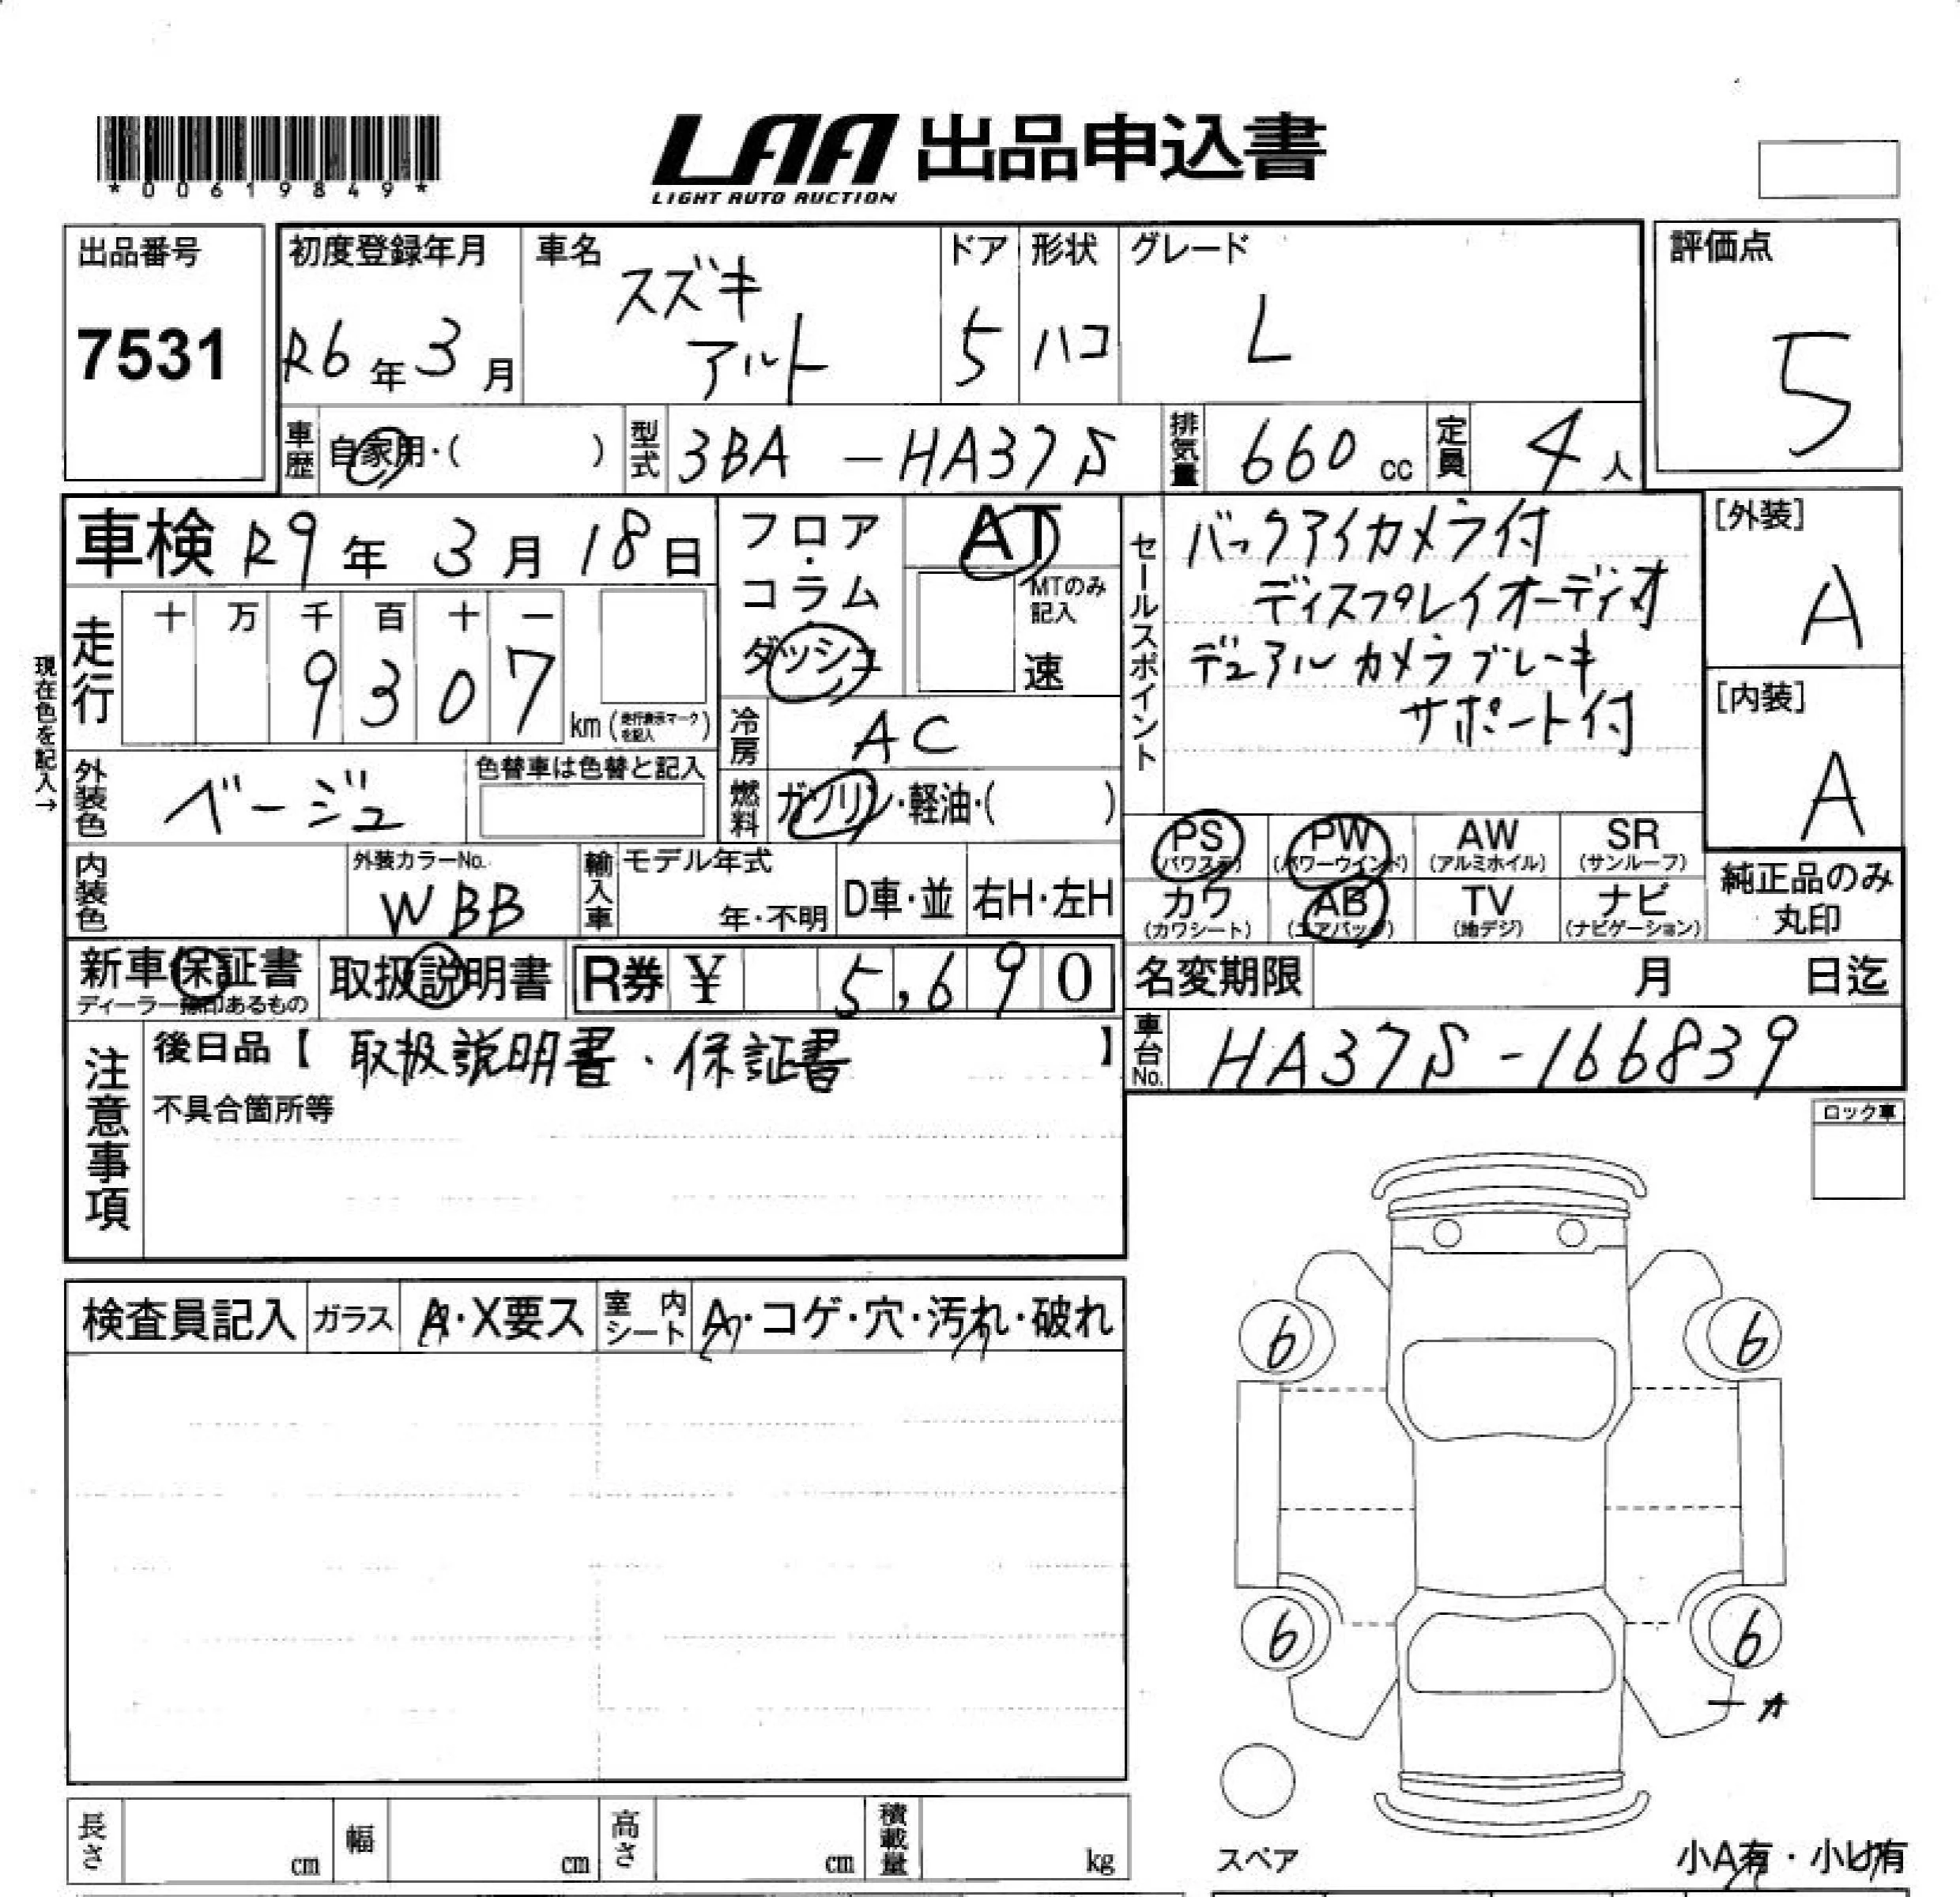 *00619849*
LAA 出品申込書
LIGHT AUTO AUCTION
出品番号
7531
初度登録年月
R6年3月
車名
スズキ
アルト
ドア
5
形状
ハコ
グレード
L
評価点
5
車歴
自家用・( )
型式
3BA -HA37S
排気量
660cc
定員
4人
車検 R9年 3月 18日
走行
十 万 千 百 十 一
9 3 0 7
km (走行表示マークを記入)
現在色を記入→
フロア・
コラム・
ダッシュ
AT
MTのみ
記入
速
冷房
AC
燃料
ガソリン・軽油・( )
セールスポイント
バックアイカメラ付
ディスプレイオーディオ
デュアルカメラブレーキ
サポート付
[外装]
A
[内装]
A
外装色
ベージュ
色替車は色替と記入
内装色
外装カラーNo.
WBB
輸入車
モデル年式
年・不明
D車・並
右H・左H
PS
(パワステ)
PW
(パワーウインド)
AW
(アルミホイル)
SR
(サンルーフ)
カワ
(カワシート)
AB
(エアバッグ)
TV
(地デジ)
ナビ
(ナビゲーション)
純正品のみ
丸印
新車保証書
ディーラー捺印あるもの
取扱説明書
R券 ¥ 5,690
名変期限 月 日迄
車台No.
HA37S-166839
注意事項
後日品【 取扱説明書・保証書 】
不具合箇所等
ロック車
検査員記入
ガラス
A・X要ス
室内シート
A・コゲ・穴・汚れ・破れ
6 6
6 6
A
スペア
小A有・小U有
長さ cm
幅 cm
高さ cm
積載量 kg